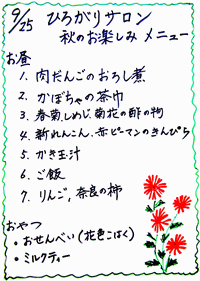 9/25 ひろがりサロン
秋のお楽しみ メニュー
お昼
1. 肉だんごのおろし煮
2. かぼちゃの茶巾
3. 春菊、しめじ、菊花の酢の物
4. 新れんこん、赤ピーマンのきんぴら
5. かき玉汁
6. ご飯
7. りんご、奈良の柿
おやつ
• おせんべい (花色こはく)
• ミルクティー